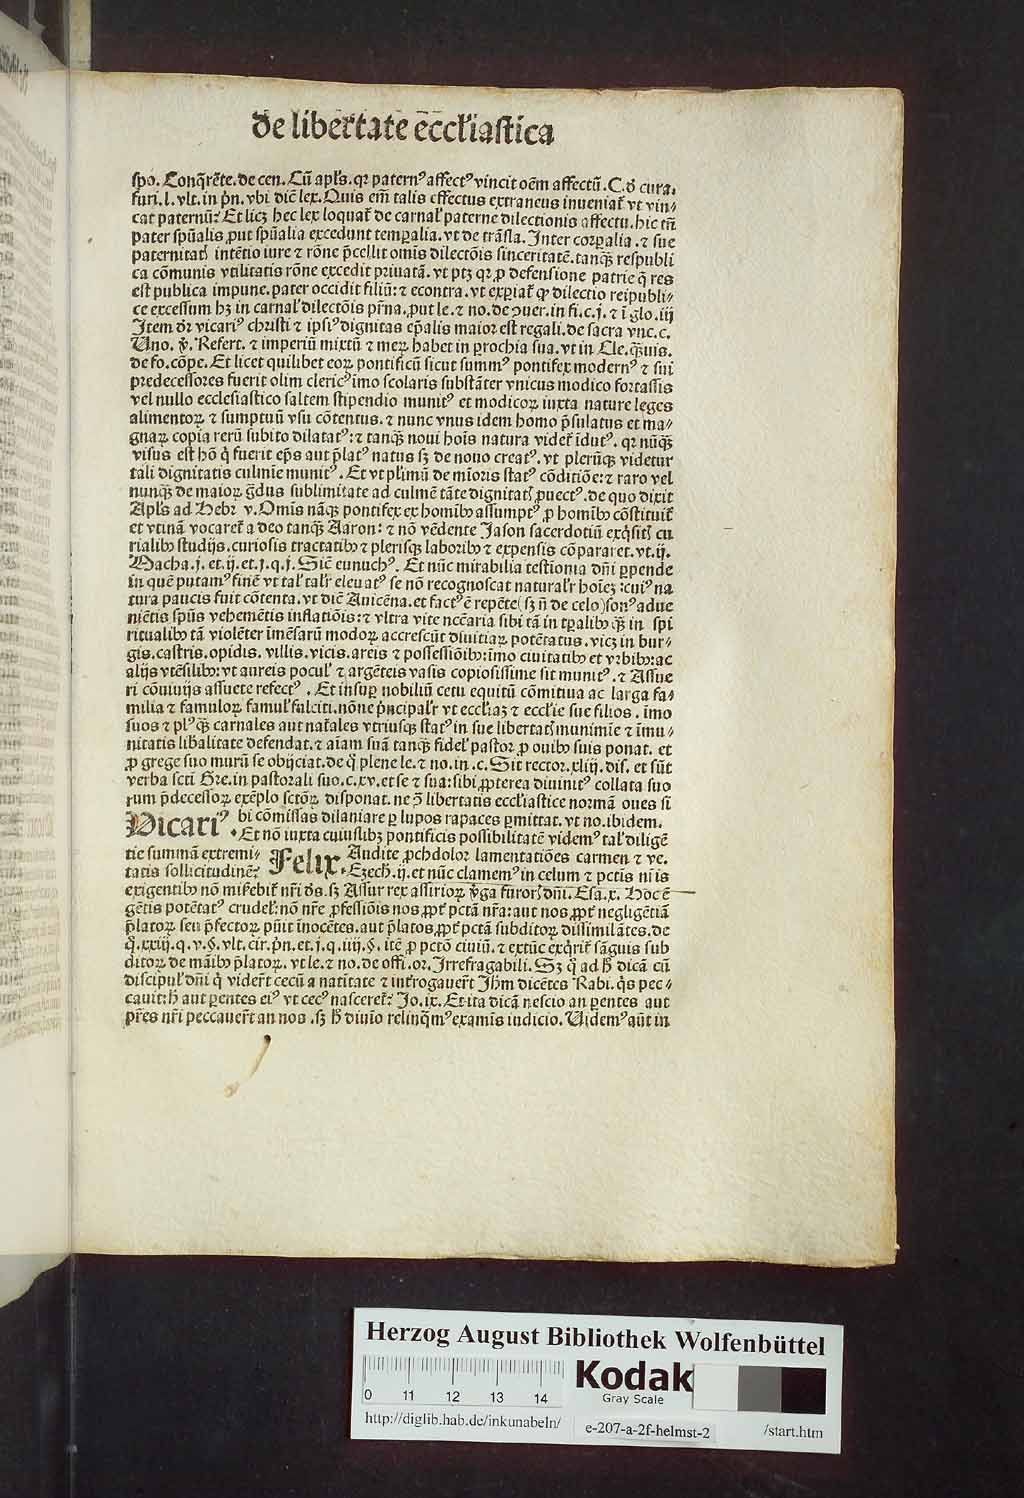 De libertate ecclīastica
spo. Conq̄rēte. de cen. Cū apl's. qꝛ patern᷒ affect᷒ vincit oēm affectū. C. ð cura.
furi. l. vlt. in p̄n. vbi dic̄ lex. Quis em̄ talis effectus extraneus inueniat̄ vt vin-
cat paternū? Et licꝫ hec lex loquat̄ de carnal' paterne dilectionis affectu. hic tn̄
pater spūalis ꝓut spūalia excedunt temꝑalia. vt de trāsla. Inter corꝑalia. ⁊ sue
paternitatꝭ intētio iure ⁊ rōne p̄cellit omīs dilectōis sinceritatē. tanqꝫ respubli
ca cōmunis vtilitatis rōne excedit priuatā. vt ptꝫ qꝛ ꝓ defensione patrie q̄ res
est publica impune. pater occidit filiū: ⁊ econtra. vt exꝑiat̄ ꝙ dilectio reipubli-
ce excessum hꝫ in carnal' dilectōis pr̄na. ꝓut le. ⁊ no. de ꝯuer. in fi. c. j. ⁊ ī glo. iij
Item dr̄ vicari᷒ christi ⁊ ipsi᷒ dignitas ep̄alis maior est regali. de sacra vnc. c.
Uno. v̄. Refert. ⁊ imperiū mixtū ⁊ meꝝ habet in ꝑrochia sua. vt in Cle. qꝫuis.
de fo. cōpe. Et licet quilibet eoꝝ pontificū sicut summ᷒ pontifex modern᷒ ⁊ sui
predecessores fuerit olim cleric᷒ īmo scolaris substāter vnicus modico fortassis
vel nullo ecclesiastico saltem stipendio munit᷒ et modicoꝝ iuxta nature leges
alimentoꝝ ⁊ sumptuū vsu cōtentus. ⁊ nunc vnus idem homo p̄sulatus et ma-
gnaꝝ copia rerū subito dilatat᷒: ⁊ tanqꝫ noui hoīs natura videt̄ īdut᷒. qꝛ nūqꝫ
visus est hō q̄ fuerit ep̄s aut p̄lat᷒ natus sꝫ de nouo creat᷒. vt plerūqꝫ videtur
tali dignitatis culmīe munit᷒. Et vt pl'imū de mīoris stat᷒ cōditiōe: ⁊ raro vel
nunqꝫ de maioꝝ g̊dus sublimitate ad culmē tāte dignitatꝭ ꝓuect᷒. de quo dixit
Apl's ad Hebr v. Omīs nāqꝫ pontifex ex homībꝰ assumpt᷒ ꝓ homībꝰ cōstituit̄
et vtinā vocaret̄ a deo tanqꝫ Aaron: ⁊ nō vēdente Jason sacerdotiū exq̄sitꝭ cu
rialibꝰ studijs. curiosis tractatibꝰ ⁊ plerisqꝫ laboribꝰ ⁊ expensis cōpararet. vt. ij.
Macha. j. et. ij. et. j. q. j. Sic̄ eunuch᷒. Et nūc mirabilia testionia dn̄i ꝑpende
in quē putam᷒ finē vt tal' tal'r eleuat᷒ se nō recognoscat natural'r hoīeꝫ: cui᷒ na
tura paucis fuit cōtenta. vt dic̄ Auicēna. et fact᷒ ē repēte (sꝫ n̄ de celo) son᷒ adue
niētis spūs vehemētis inflatiōis: ⁊ vltra vite nccāria sibi tā in tꝑalibꝰ qꝫ in spi
ritualibꝰ tā violēter īmēsarū modoꝝ accrescūt diuitiaꝝ potētatus. vicꝫ in bur-
gis. castris. opidis. villis. vicis. areis ⁊ possessiōibꝰ: īmo ciuitatibꝰ et vrbibꝰ: ac
alijs vtēsilibꝰ: vt aureis pocul' ⁊ argēteis vasis copiosissime sit munit᷒. ⁊ Assue
ri cōuiuijs assuete refect᷒. Et insuꝑ nobiliū cetu equitū cōmitiua ac larga fa-
milia ⁊ famuloꝝ famul' falciti. nōne p̄ncipal'r vt eccliaꝫ ⁊ eccl'ie sue filios. īmo
suos ⁊ pl᷒ qꝫ carnales aut nat̄ales vtriusqꝫ stat᷒ in sue libertatꝭ munimīe ⁊ īmu-
nitatis libalitate defendat. ⁊ aīam suā tanqꝫ fidel' pastor ꝓ ouibꝰ suis ponat. et
ꝓ grege suo murū se obijciat. de q̊ plene le. ⁊ no. in. c. Sit rector. xliij. dis. et sūt
verba scti Gre. in pastorali suo. c. xv. et se ⁊ sua: sibi ꝓpterea diuinit᷒ collata suo
rum p̄decessoꝝ exēplo sctōꝝ disponat. ne ꝯ̄ libertatis eccl'iastice normā oues si
Vicari᷒ bi cōmissas dilaniare ꝑ lupos rapaces ꝑmittat. vt no. ibidem.
. Et nō iuxta cuiuslibꝫ pontificis possibilitatē videm᷒ tal' diligē
tie summā extremi- Felix. Audite ꝓchdolor lamentatiōes carmen ⁊ ve.
tatis sollicitudinē? Ezech. ij. et nūc clamem᷒ in celum ⁊ pctis nr̄is
exigentibꝰ nō mis̄ebit̄ nr̄i ds̄. sꝫ Assur rex assirioꝝ v̄ga furorꝭ dn̄i. Esa. x. Hoc ē
gētis potētat᷒ crudel': nō nr̄e ꝓfessiōis nos ꝓpt̄ pctā nr̄a: aut nos ꝓpt̄ negligētiā
p̄latoꝝ seu p̄fectoꝝ pūit īnocētes. aut p̄latos ꝓpt̄ pctā subditoꝝ dissimilātes. de
q̊. xxiij. q. v. §. vlt. cir. p̄n. et. j. q. iiij. §. itē ꝓ pctō ciuiū. ⁊ extūc exq̄rit̄ sāguis sub
ditoꝝ de māibꝰ p̄latoꝝ. vt le. ⁊ no. de offi. or. Irrefragabili. Sꝫ q̊ ad h̄ dicā cū
discipul' dn̄i q̄ viderūt cecū a natītate ⁊ int̄rogauer̄t Jhm̄ dicētes Rabi. q̄s pec-
cauit: h̄ aut ꝑentes ei᷒ vt cec᷒ nasceret̄? Jo. ix. Et ita dicā nescio an ꝑentes aut
pr̄es nr̄i peccauer̄t an nos. sꝫ h̄ diuīo relinq̄m᷒ examīs iudicio. Uidem᷒ aūt in
Herzog August Bibliothek Wolfenbüttel
0 11 12 13 14
Kodak
Gray Scale
http://diglib.hab.de/inkunabeln/ e-207-a-2f-helmst-2 /start.htm